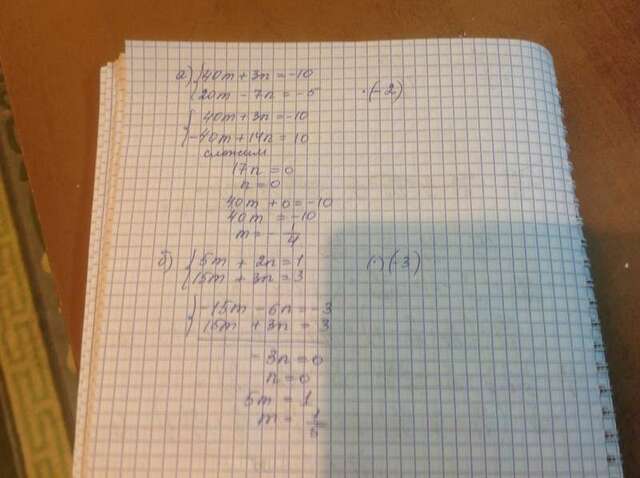 а) { 40m + 3n = -10
20m - 7n = -5 ·(-2)
{ 40m + 3n = -10
-40m + 14n = 10
сложим
17n = 0
n = 0
40m + 0 = -10
40m = -10
m = - 1/4
б) { 5m + 2n = 1 (·)(-3)
15m + 3n = 3
{ -15m - 6n = -3
15m + 3n = 3
- 3n = 0
n = 0
5m = 1
m = 1/5